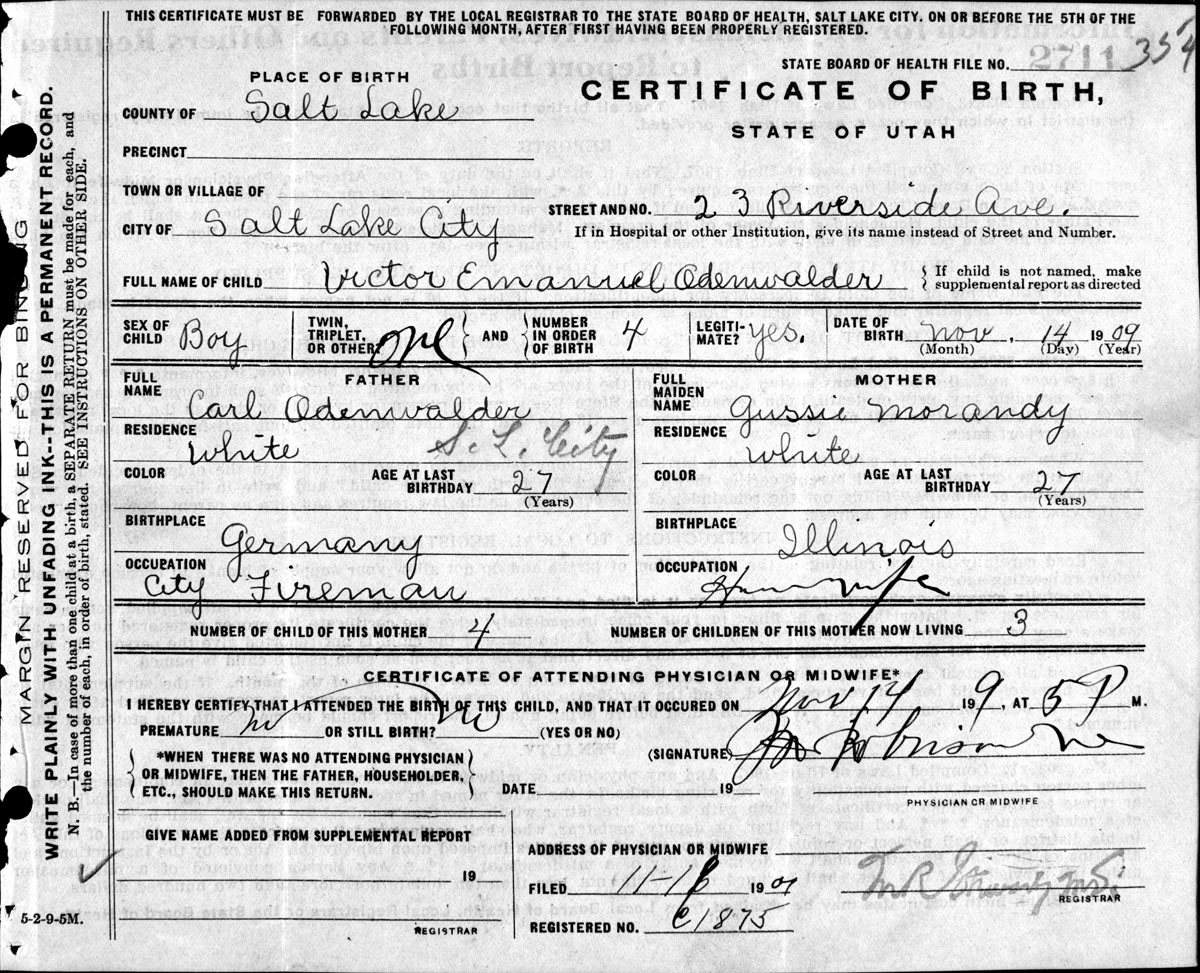 THIS CERTIFICATE MUST BE FORWARDED BY THE LOCAL REGISTRAR TO THE STATE BOARD OF HEALTH, SALT LAKE CITY. ON OR BEFORE THE 5TH OF THE
FOLLOWING MONTH, AFTER FIRST HAVING BEEN PROPERLY REGISTERED.
STATE BOARD OF HEALTH FILE NO. 2711 354
PLACE OF BIRTH
CERTIFICATE OF BIRTH,
COUNTY OF Salt Lake
STATE OF UTAH
PRECINCT
TOWN OR VILLAGE OF
STREET AND NO. 23 Riverside Ave.
CITY OF Salt Lake City
If in Hospital or other Institution, give its name instead of Street and Number.
FULL NAME OF CHILD Victor Emanuel Odenwalder
{ If child is not named, make
supplemental report as directed
SEX OF CHILD Boy
TWIN, TRIPLET, OR OTHER? One } AND { NUMBER IN ORDER OF BIRTH 4
LEGITI-MATE? yes.
DATE OF BIRTH Nov, 14 1909
(Month) (Day) (Year)
FATHER
FULL NAME Carl Odenwalder
RESIDENCE S. L. City
COLOR White
AGE AT LAST BIRTHDAY 27
(Years)
BIRTHPLACE Germany
OCCUPATION City Fireman
MOTHER
FULL MAIDEN NAME Gussie Morandy
RESIDENCE
COLOR White
AGE AT LAST BIRTHDAY 27
(Years)
BIRTHPLACE Illinois
OCCUPATION Housewife
NUMBER OF CHILD OF THIS MOTHER 4 NUMBER OF CHILDREN OF THIS MOTHER NOW LIVING 3
CERTIFICATE OF ATTENDING PHYSICIAN OR MIDWIFE*
I HEREBY CERTIFY THAT I ATTENDED THE BIRTH OF THIS CHILD, AND THAT IT OCCURED ON Nov 14 199, AT 5 P M.
PREMATURE no OR STILL BIRTH? no (YES OR NO)
(SIGNATURE)
{ *WHEN THERE WAS NO ATTENDING PHYSICIAN
OR MIDWIFE, THEN THE FATHER, HOUSEHOLDER,
ETC., SHOULD MAKE THIS RETURN. }
DATE 19
PHYSICIAN OR MIDWIFE
GIVE NAME ADDED FROM SUPPLEMENTAL REPORT
19
REGISTRAR
ADDRESS OF PHYSICIAN OR MIDWIFE
FILED 11-16 1909
REGISTRAR
REGISTERED NO. C1873
5-2-9-5M.
MARGIN RESERVED FOR BINDING
WRITE PLAINLY WITH UNFADING INK--THIS IS A PERMANENT RECORD.
N. B.—In case of more than one child at a birth, a SEPARATE RETURN must be made for each, and
the number of each, in order of birth, stated. SEE INSTRUCTIONS ON OTHER SIDE.